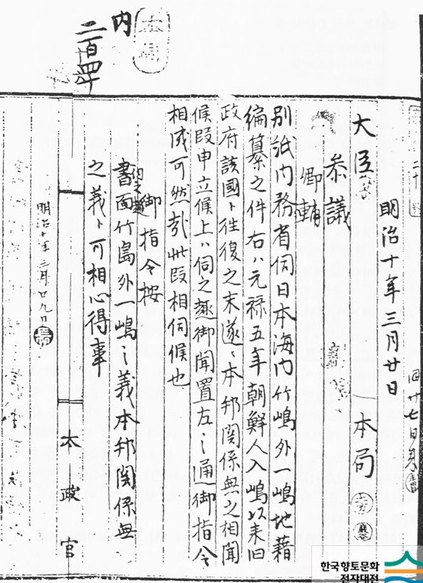 内
二百四十
明治十年三月廿日
大臣
本局
参議
卿輔
別紙内務省伺日本海内竹嶋外一嶋地籍
編纂之件右ハ元禄五年朝鮮人入嶋以来旧
政府該國ト往復之末遂ニ本邦関係無之相聞
候段申立候上ハ伺之趣御聞置左之通御指令
相成可然哉此段相伺候也
御指令按
書面竹島外一嶋之義本邦関係無
之義ト可相心得事
明治十年三月廿九日
太政官
한국향토문화
전자대전